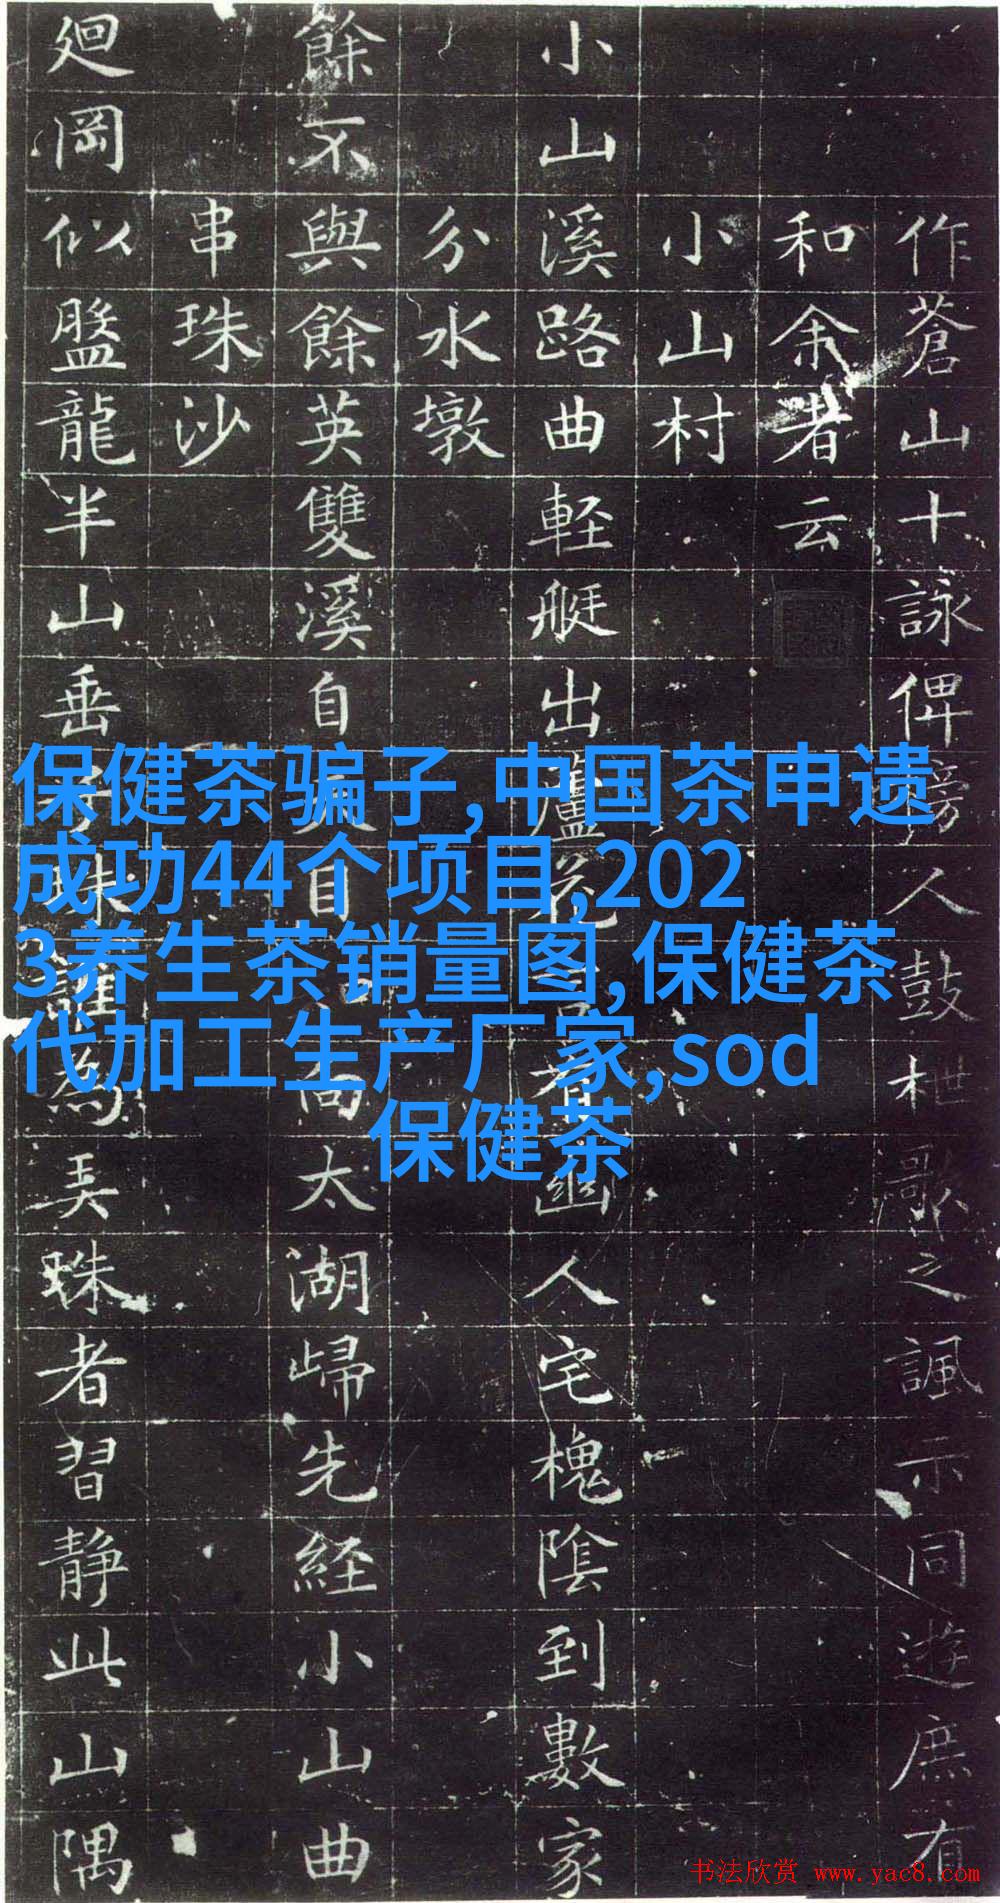 作蒼山十詠俾榜人鼓枻歌之諷示同遊庶有
和余者云
小山村
小山溪路曲軽艇出蘆花看幽人宅槐陰到數家
分水墩
餘不與餘英雙溪自天目向太湖歸先経小山曲
串珠沙
廻岡似盤龍半山垂珠誰為弄珠者習静此山隅
保健茶骗子,中国茶申遗
成功44个项目,202
3养生茶销量图,保健茶
代加工生产厂家,sod
保健茶
书法欣赏 www.yac8.com